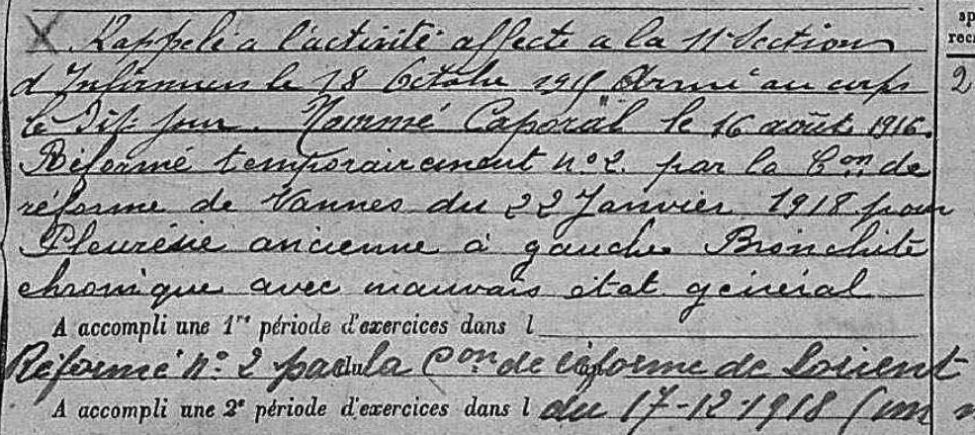 X Rappelé a l'activité affecté a la 11e Section
d'Infirmiers le 18 Octobre 1915 Arrivé au corps
le dit jour. Nommé Caporal le 16 août 1916.
Réformé temporairement n°2. par la Con de
réforme de Vannes du 22 Janvier 1918 pour
Pleurésie ancienne à gauche Bronchite
chronique avec mauvais état général
A accompli une 1re période d'exercices dans l
Réformé n° 2 par la Con de réforme de Lorient
A accompli une 2e période d'exercices dans l du 17-12-1918 (un
sp
recr
2